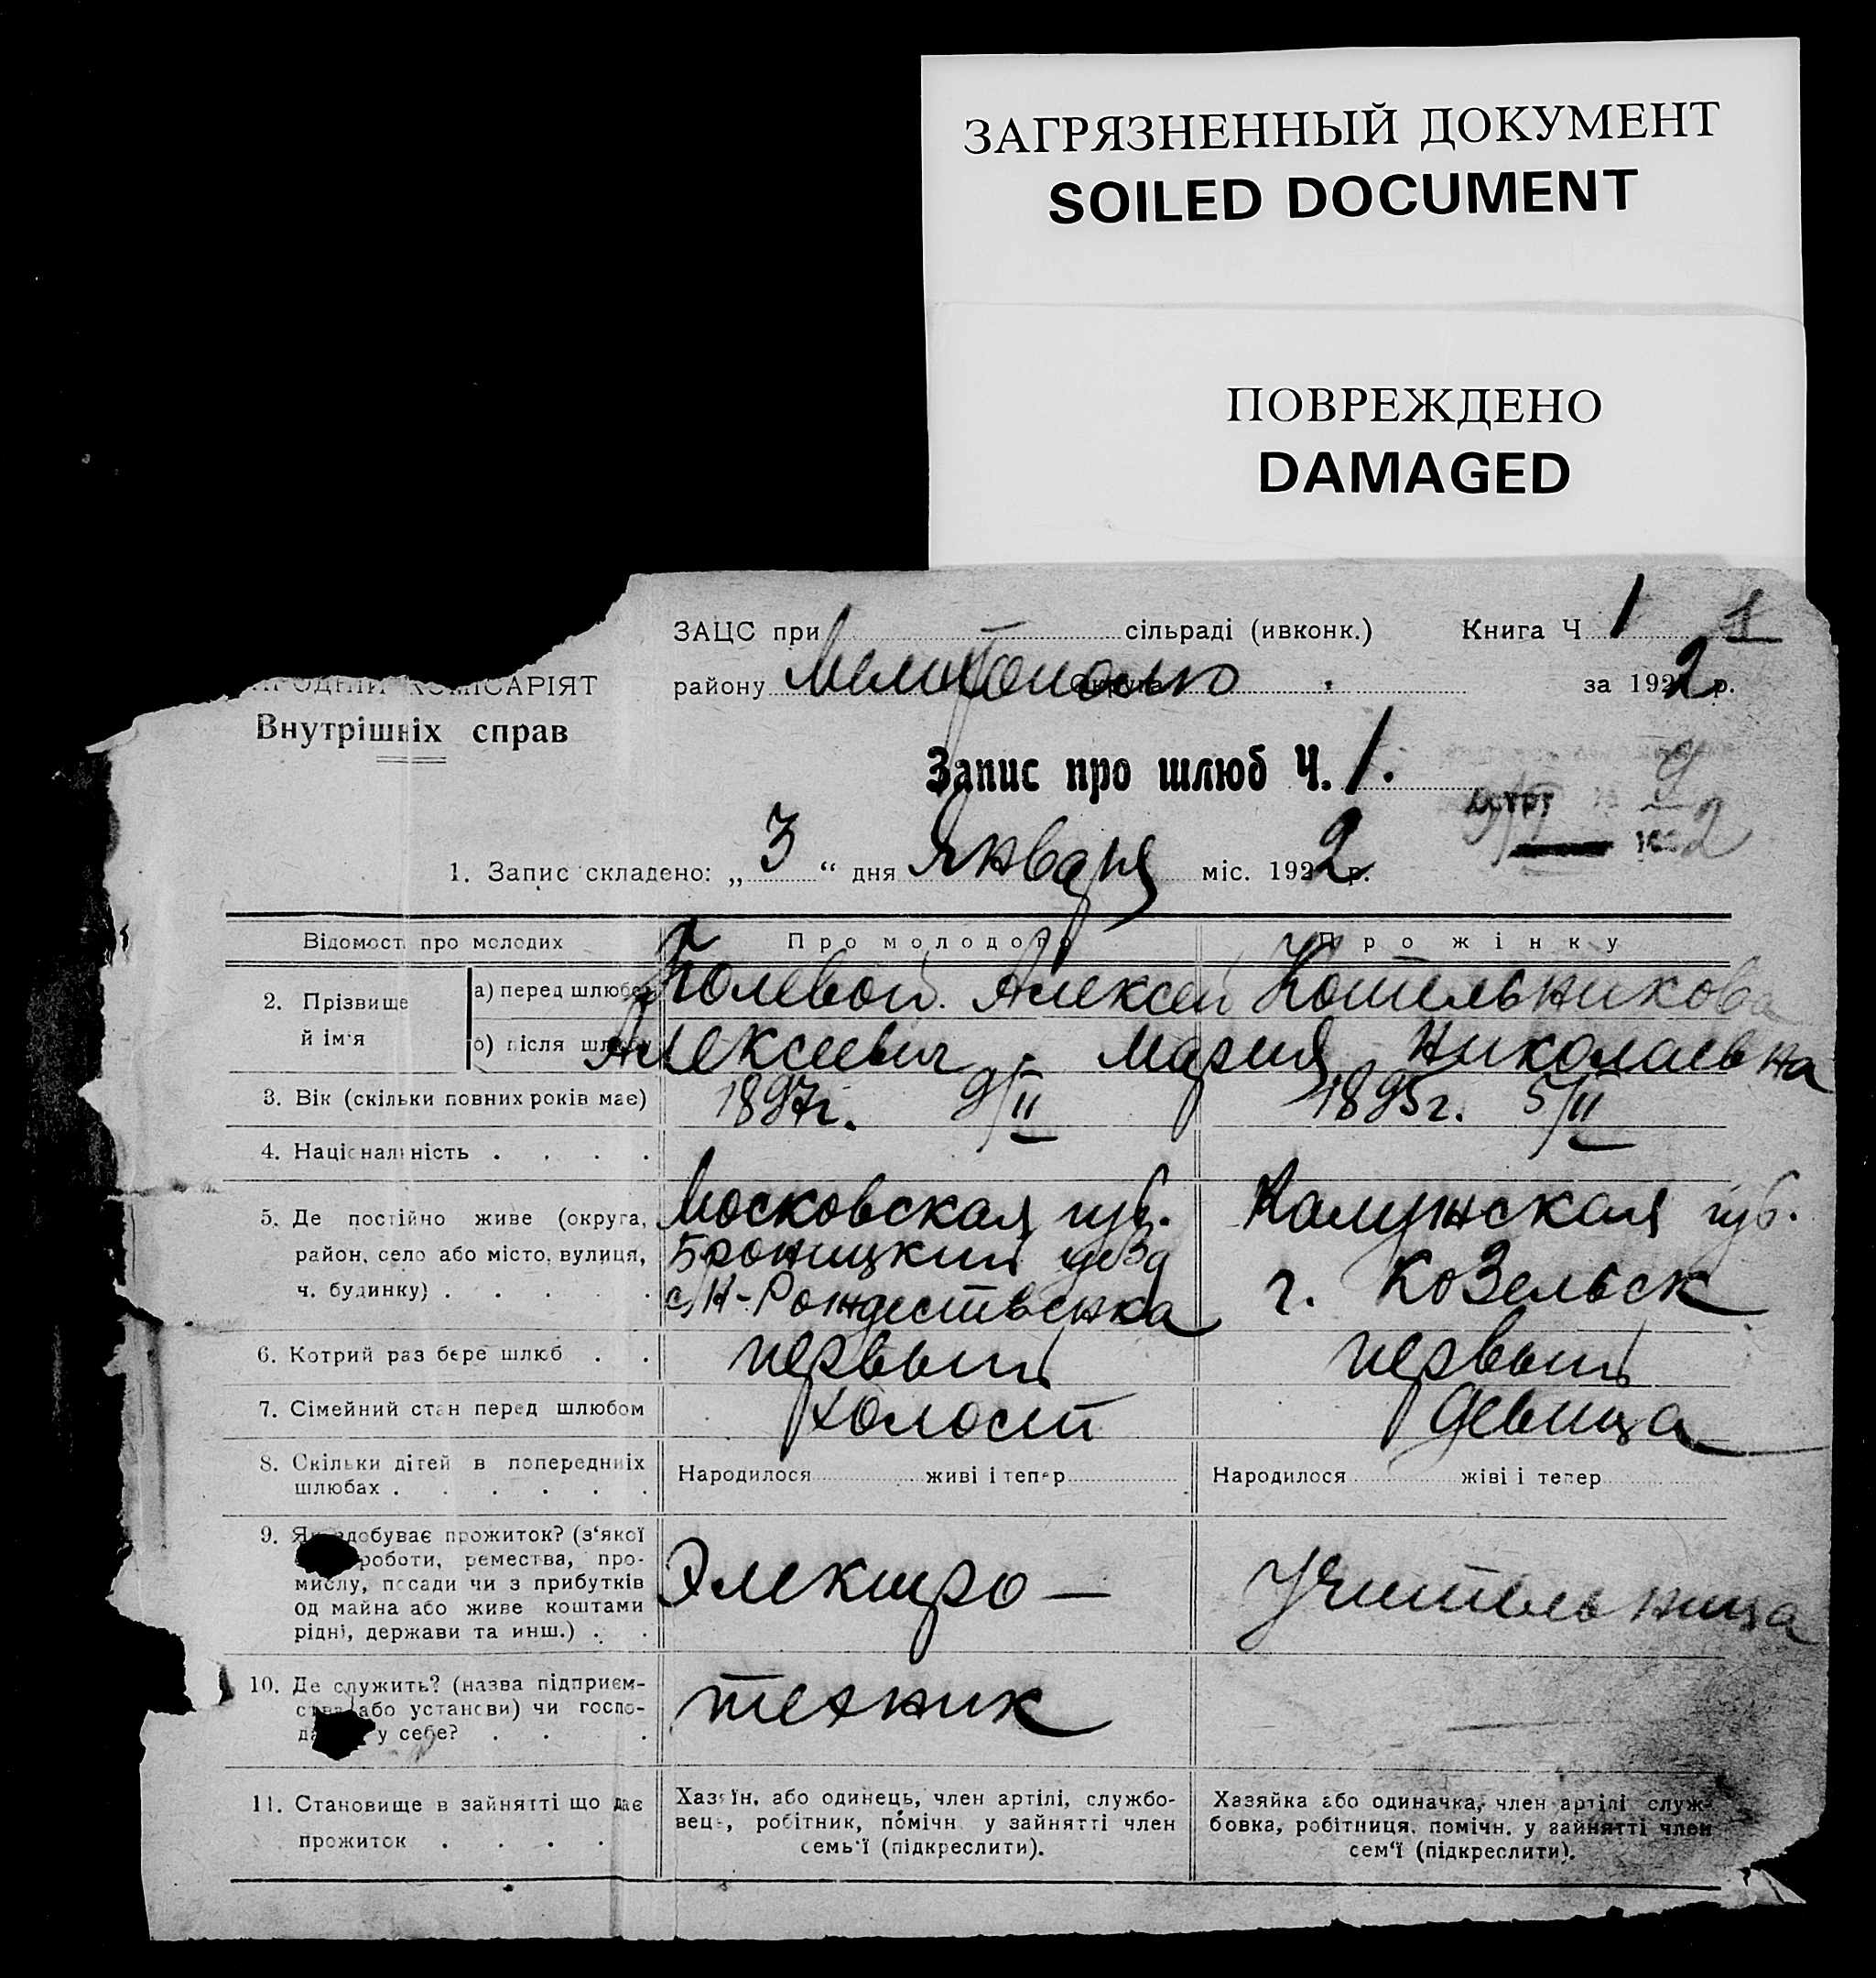 ЗАГРЯЗНЕННЫЙ ДОКУМЕНТ
SOILED DOCUMENT
ПОВРЕЖДЕНО
DAMAGED
ЗАЦС при сільраді (ивконк.) Книга Ч 1 1
КОМІСАРІЯТ району Мелитополь за 1922 р.
Внутрішніх справ
Запис про шлюб Ч. 1.
1. Запис складено: „ 3 “ дня Января міс. 1922 р.
Відомості про молодих Про молодого Про жінку
2. Прізвище й ім'я а) перед шлюбом Полевой Алексей Котельникова
б) після шлюбу Алексеевич Мария Николаевна
3. Вік (скільки повних років має) 1897г. 9/II 1895г. 5/II
4. Національність . . . .
5. Де постійно живе (округа, Московская губ. Калужская губ.
район, село або місто, вулиця, Броницкий уезд г. Козельск
ч. будинку) . . . . . с. Н-Рождественка
6. Котрий раз бере шлюб . . первый первый
7. Сімейний стан перед шлюбом холост девица
8. Скільки дітей в попередніх Народилося живі і тепер Народилося жіві і тепер
шлюбах . . . . . .
9. Як здобуває прожиток? (з'якої Электро- Учительница
роботи, ремества, про-
мислу, посади чи з прибутків
од майна або живе коштами
рідні, держави та инш.) . .
10. Де служить? (назва підприєм- техник
ства або установи) чи госпо-
у себе? . . .
11. Становище в зайнятті що дає Хазяїн, або одинець, член артілі, службо- Хазяйка або одиначка, член артілі служ-
прожиток . . . . вець, робітник, помічн. у зайнятті член бовка, робітниця, помічн. у зайнятті член
семь'ї (підкреслити). сем'ї (підкреслити).